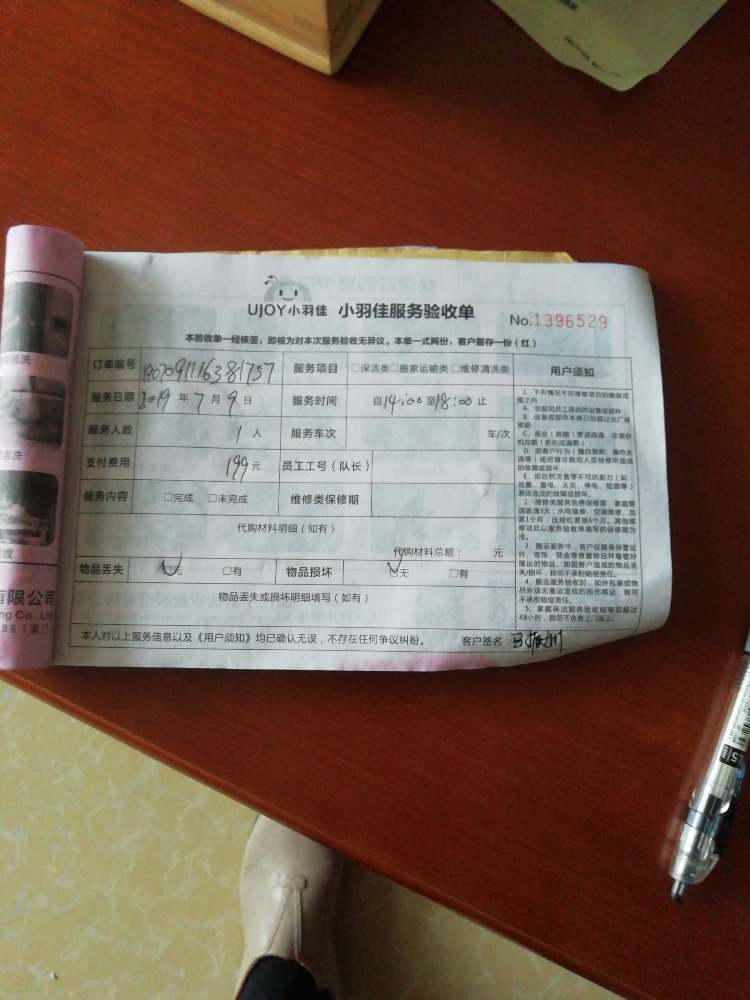 UJOY小羽佳 小羽佳服务验收单
No.1396529
本验收单一经核签，即视为对本次服务验收无异议。本单一式两份，客户留存一份（红）
订单编号 服务项目 □保洁类□搬家运输类□维修清洗类 用户须知
服务日期 2019 年 7 月 9 日 服务时间 自 14:00 至 18:00 止
服务人数 1 人 服务车次 车/次
支付费用 199 元 员工工号（队长）
服务内容 □完成 □未完成 维修类保修期
代购材料明细（如有）
代购材料总额： 元
物品丢失 □无 □有 物品损坏 □无 □有
物品丢失或损坏明细填写（如有）
本人对以上服务信息以及《用户须知》均已确认无误，不存在任何争议纠纷。 客户签名：
1、下列情况不在维修项目的维保范
围之内
A、非我司员工提供的设备或部件
B、设备或部件本身已经超过出厂保
修期
D、因客户行为（擅自拆卸、操作失
误等）或另请非我司人员维修所造成
的故障或损坏
E、因自然灾害等不可抗能力（如：
地震、雷电、火灾、停电、短路等）
原因造成的故障或损坏。
2、维修类服务免费保修期：家庭管
道疏通7天，水电维修、空调维修、加
氨1个月；压缩机更换6个月。其他维
修项目以服务验收单填写的保修期为
准。
3、搬运服务中，客户应随身保管证
件、首饰、现金等贵重物品并看管好
搬运的物品，如因客户造成的物品丢
失/损坏，我司不承担赔偿责任。
4、搬运服务验收时，如外包装或物
品外观无搬运造成的损伤痕迹，我司
不承担赔偿责任。
5、家庭保洁服务验收结束后超过
48小时，我司不负责上门返工。
清洗
清洗
有限公司
ng Co.,Ltd
88（厦门